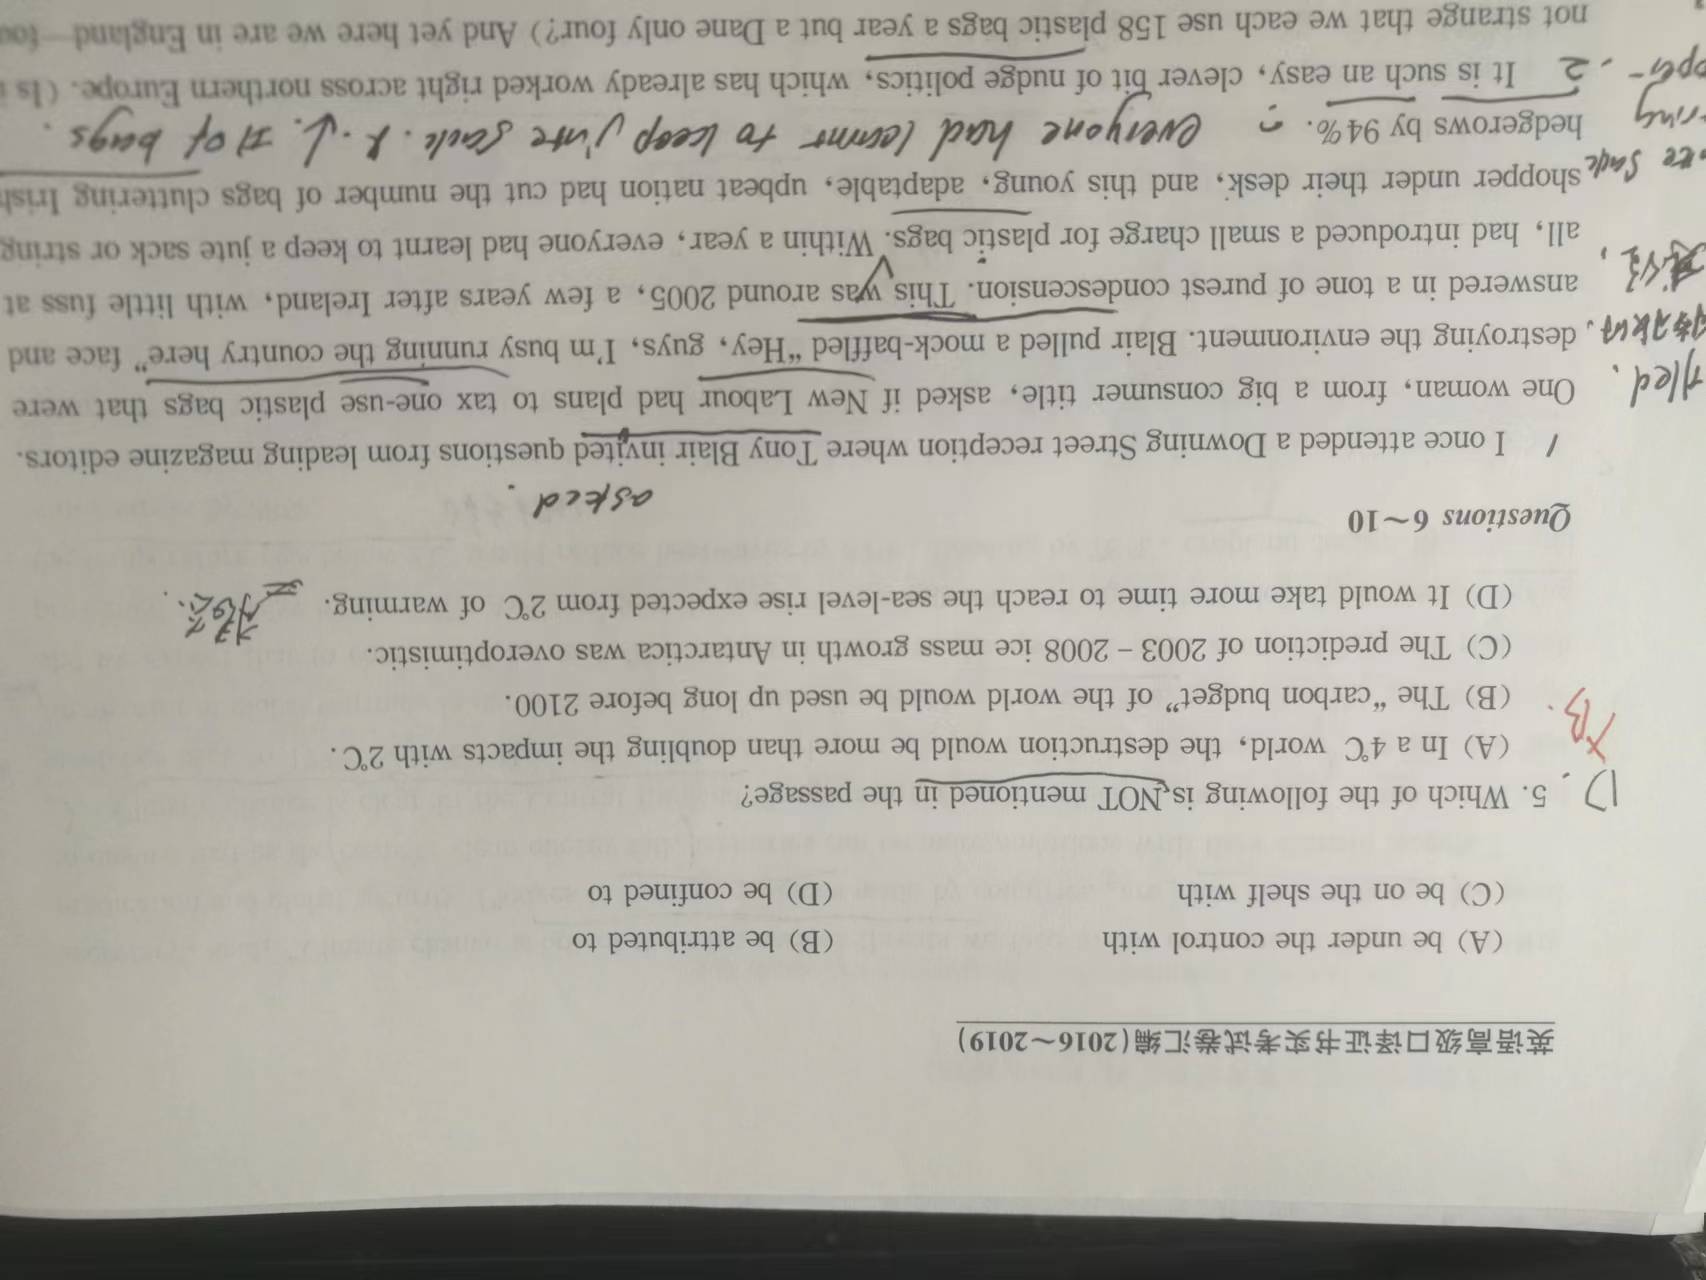 英语高级口译证书实考试卷汇编(2016~2019)
(A) be under the control with (B) be attributed to
(C) be on the shelf with (D) be confined to
D. 5. Which of the following is NOT mentioned in the passage?
(A) In a 4℃ world, the destruction would be more than doubling the impacts with 2℃.
(B) The “carbon budget” of the world would be used up long before 2100.
(C) The prediction of 2003-2008 ice mass growth in Antarctica was overoptimistic.
(D) It would take more time to reach the sea-level rise expected from 2℃ of warming.
Questions 6~10
asked.
1 I once attended a Downing Street reception where Tony Blair invited questions from leading magazine editors.
One woman, from a big consumer title, asked if New Labour had plans to tax one-use plastic bags that were
destroying the environment. Blair pulled a mock-baffled “Hey, guys, I'm busy running the country here” face and
answered in a tone of purest condescension. This was around 2005, a few years after Ireland, with little fuss at
all, had introduced a small charge for plastic bags. Within a year, everyone had learnt to keep a jute sack or string
shopper under their desk, and this young, adaptable, upbeat nation had cut the number of bags cluttering Irish
hedgerows by 94%. everyone had learnt to keep jute sack. & ↓. # of bags.
2 It is such an easy, clever bit of nudge politics, which has already worked right across northern Europe. (Is
not strange that we each use 158 plastic bags a year but a Dane only four?) And yet here we are in England